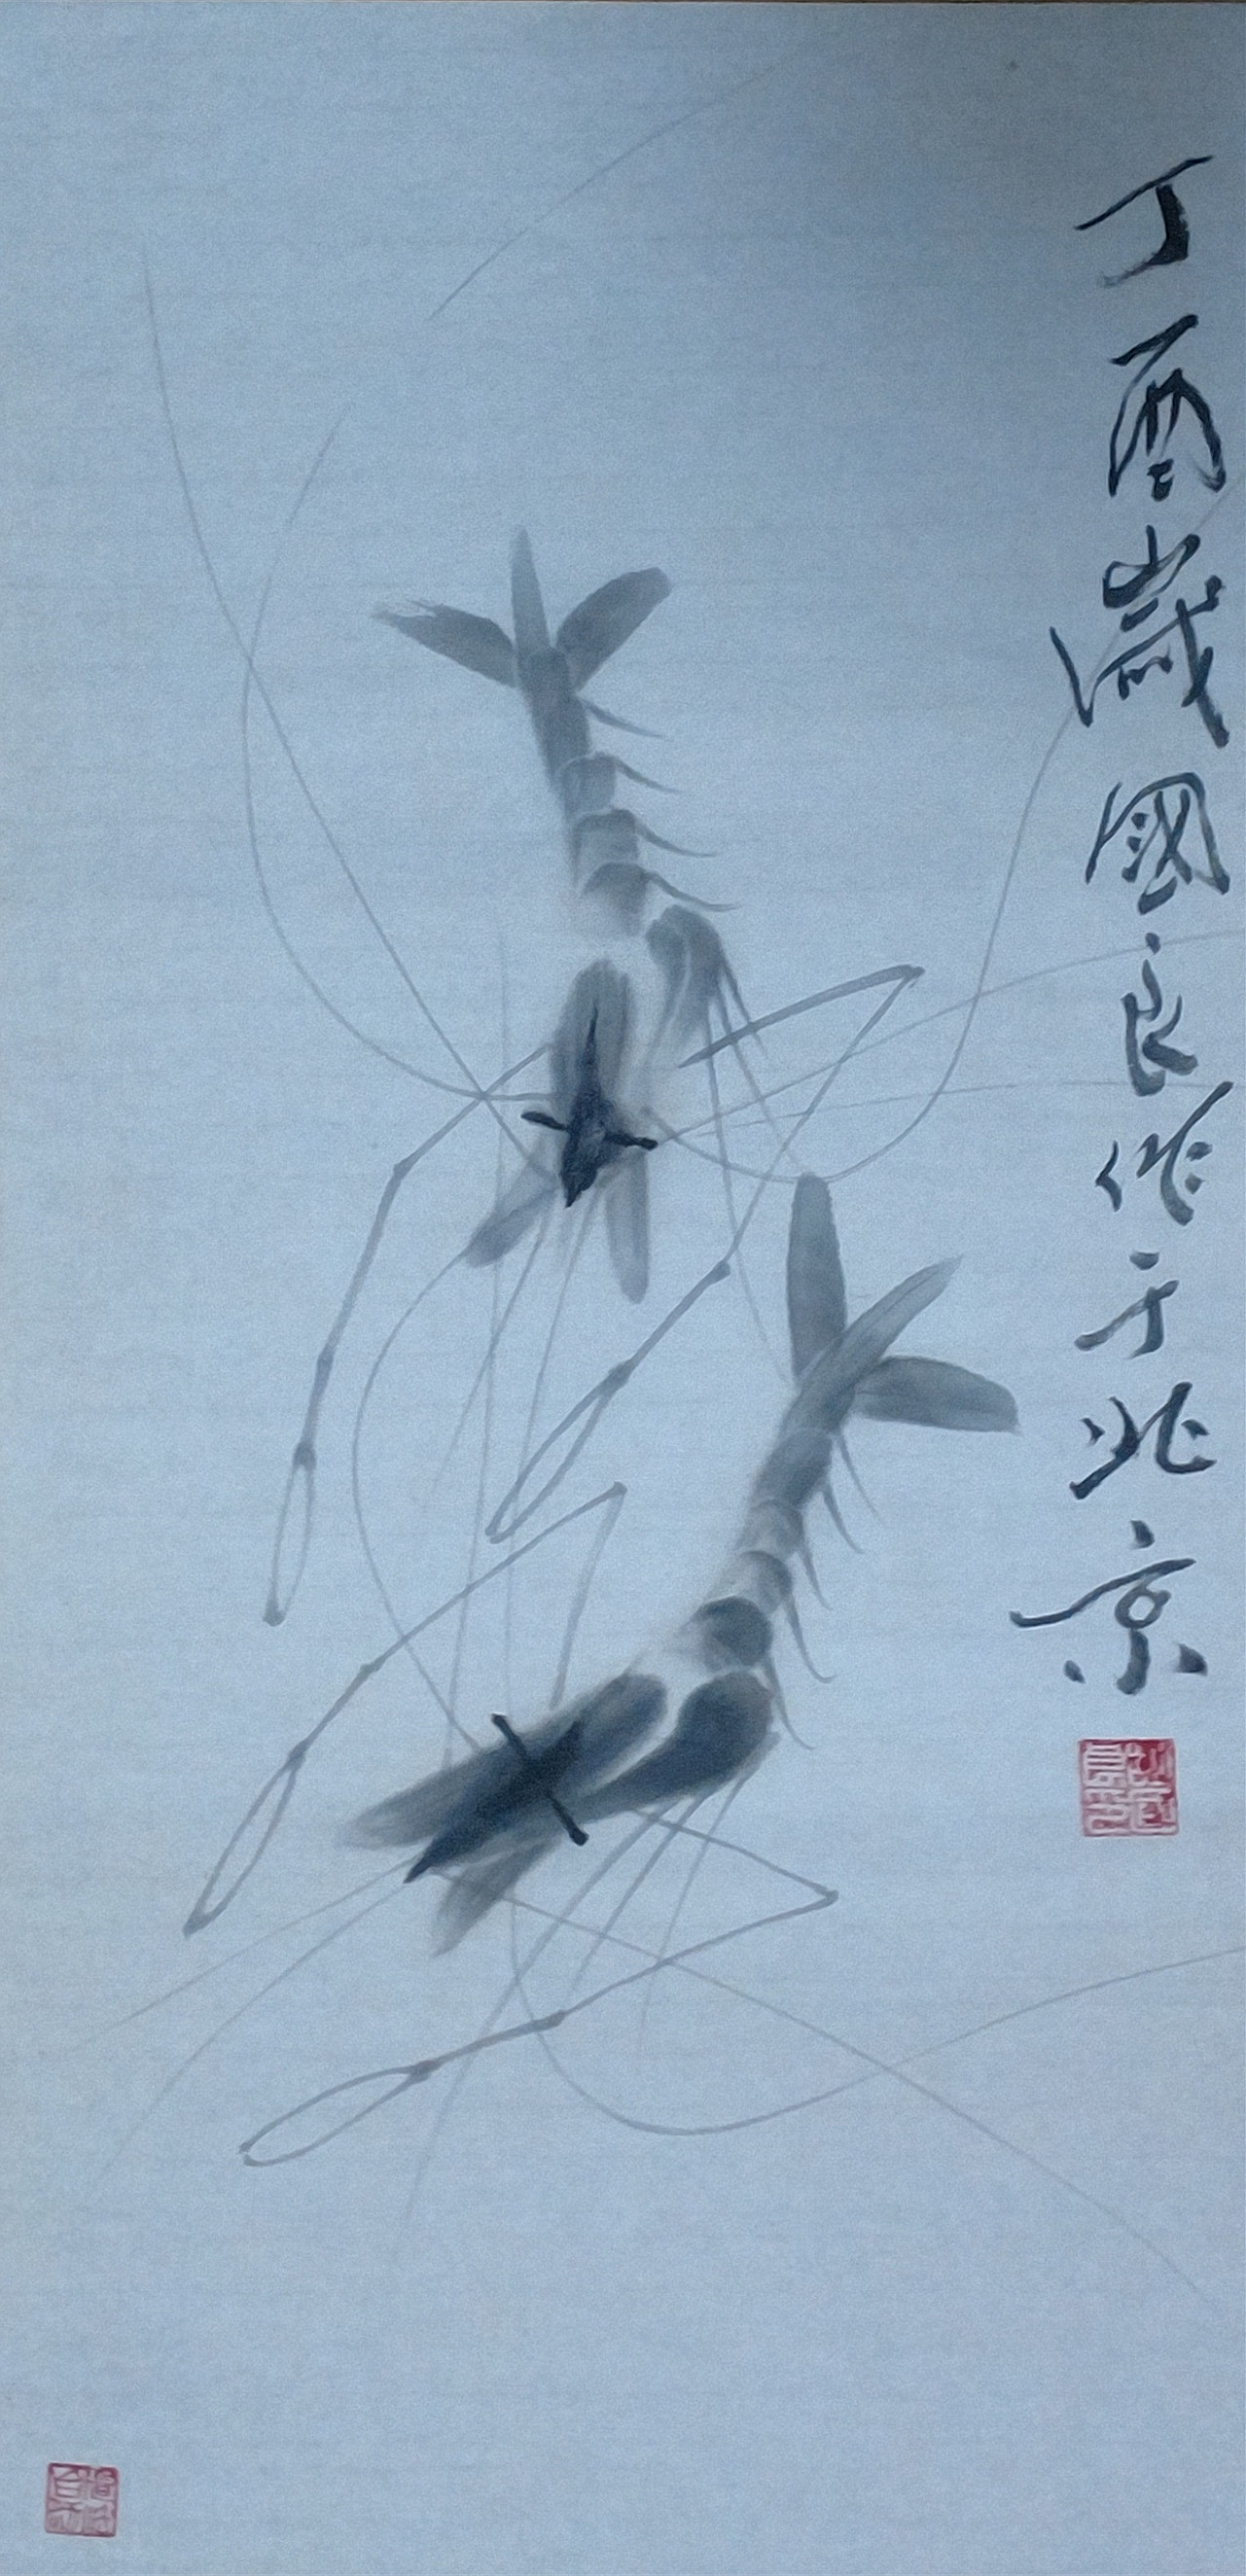 丁酉歲國良作于北京